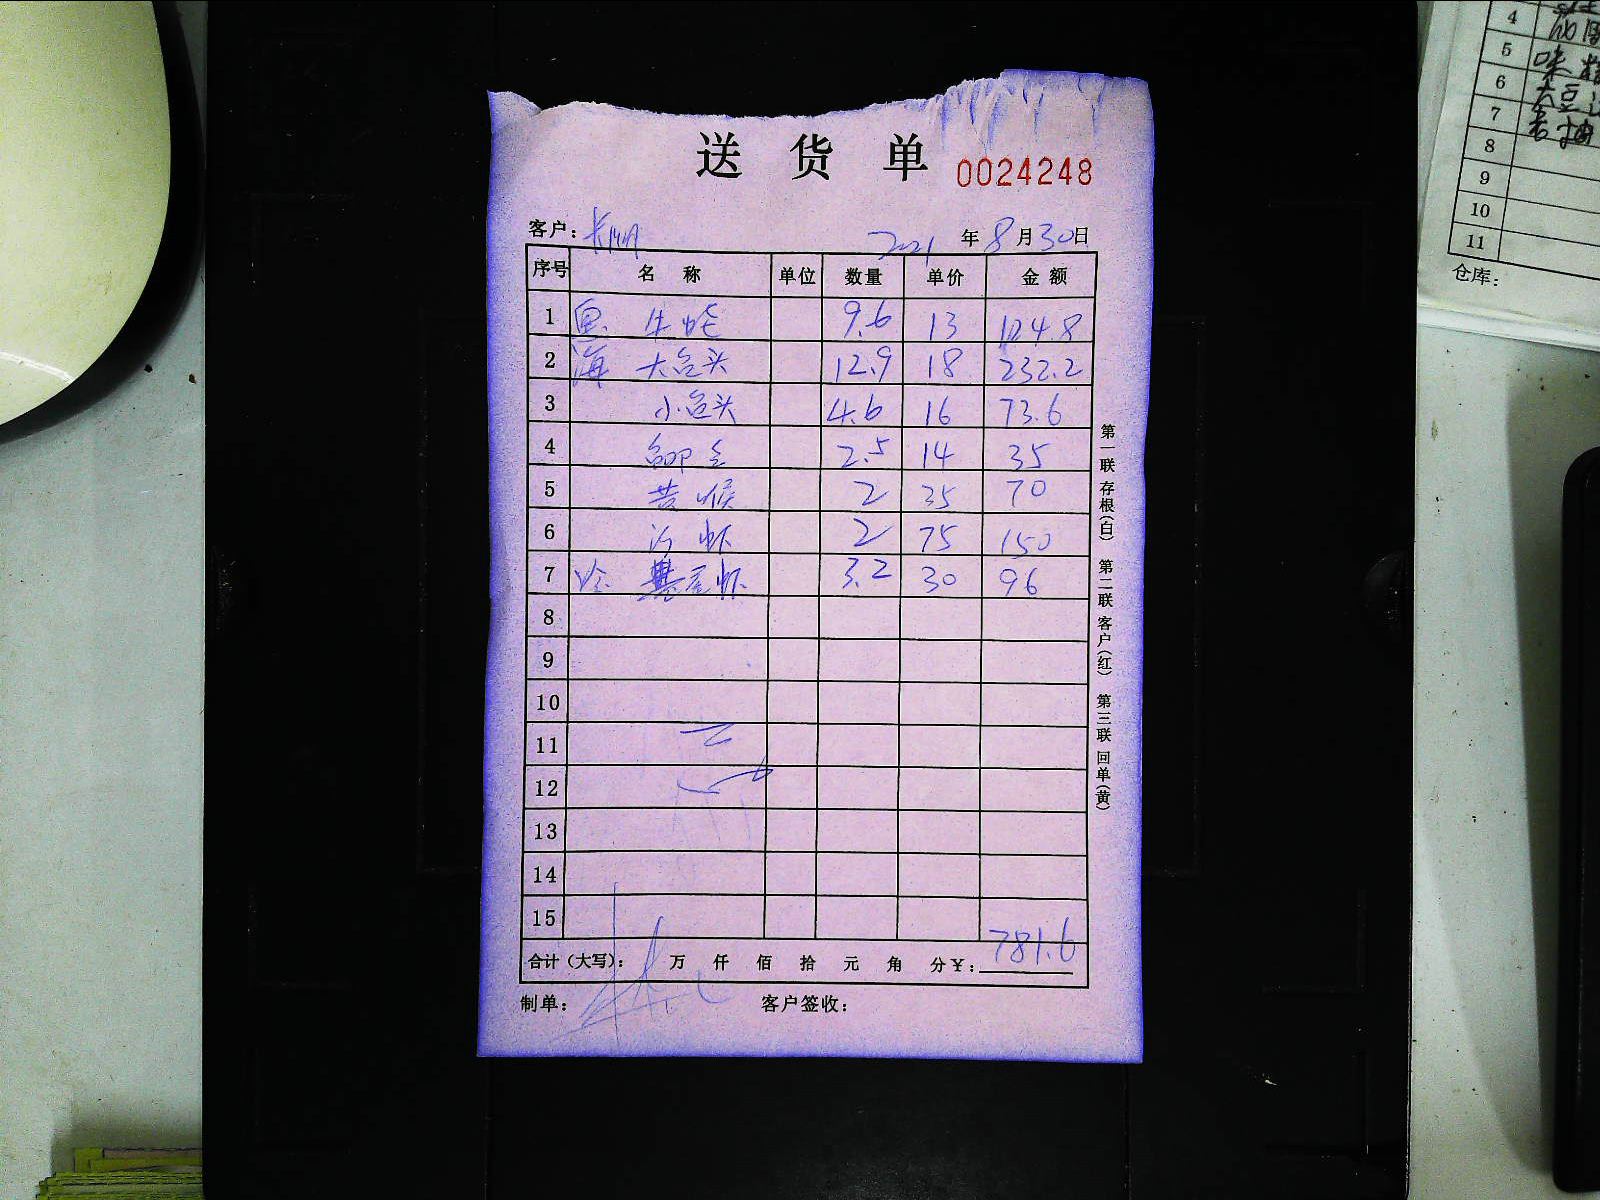 送货单 0024248
客户： 2021年8月30日
序号 名称 单位 数量 单价 金额
1 鱼 牛蛇 9.6 13 124.8
2 海 大鱼头 12.9 18 232.2
3 小鱼头 4.6 16 73.6
4 2.5 14 35
5 黄喉 2 35 70
6 虾 2 75 150
7 冷 基尾虾 3.2 30 96
8
9
10
11
12
13
14
15
合计（大写）： 万 仟 佰 拾 元 角 分￥：781.6
制单： 客户签收：
第一联 存根（白） 第二联 客户（红） 第三联 回单（黄）
4
5 味精
6 大豆
7 老抽
8
9
10
11
仓库：